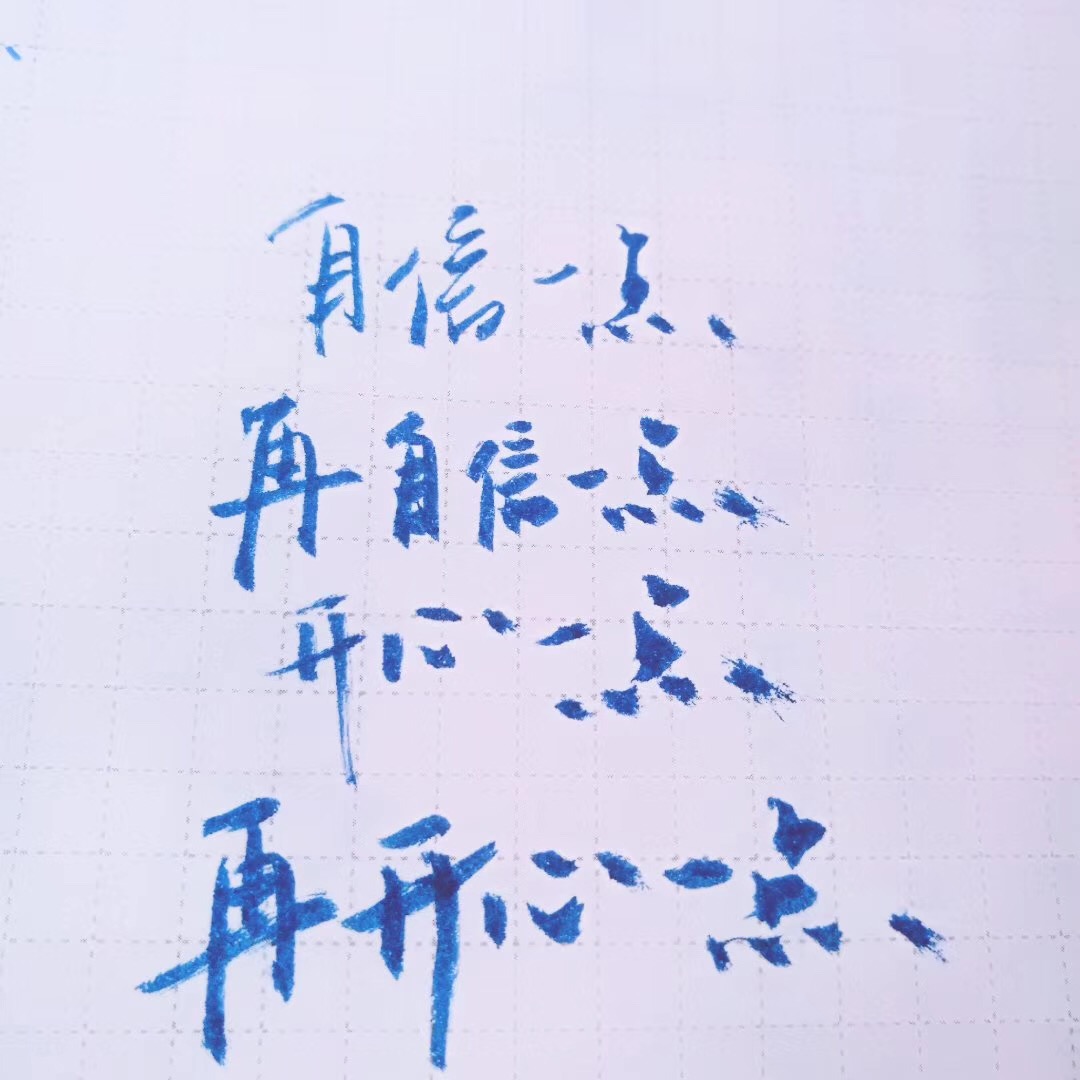 自信一点、
再自信一点、
开心一点、
再开心一点、